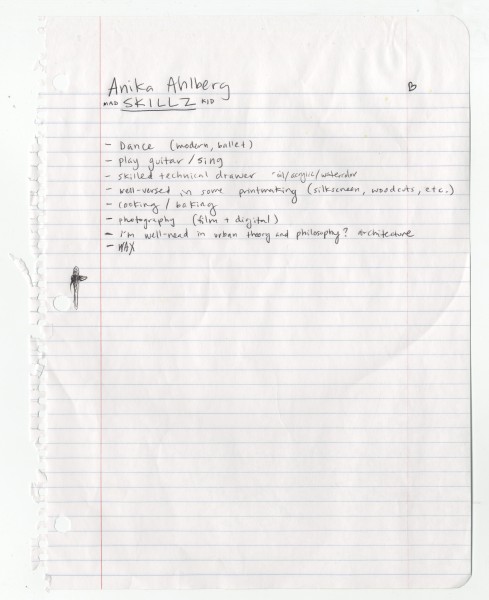 Anika Ahlberg B
MAD SKILLZ KID
- Dance (modern, ballet)
- play guitar / sing
- skilled technical drawer - oil/acrylic/watercolor
- well-versed in some printmaking (silkscreen, woodcuts, etc.)
- cooking / baking
- photography (film + digital)
- i'm well-read in urban theory and philosophy? architecture
- WAX